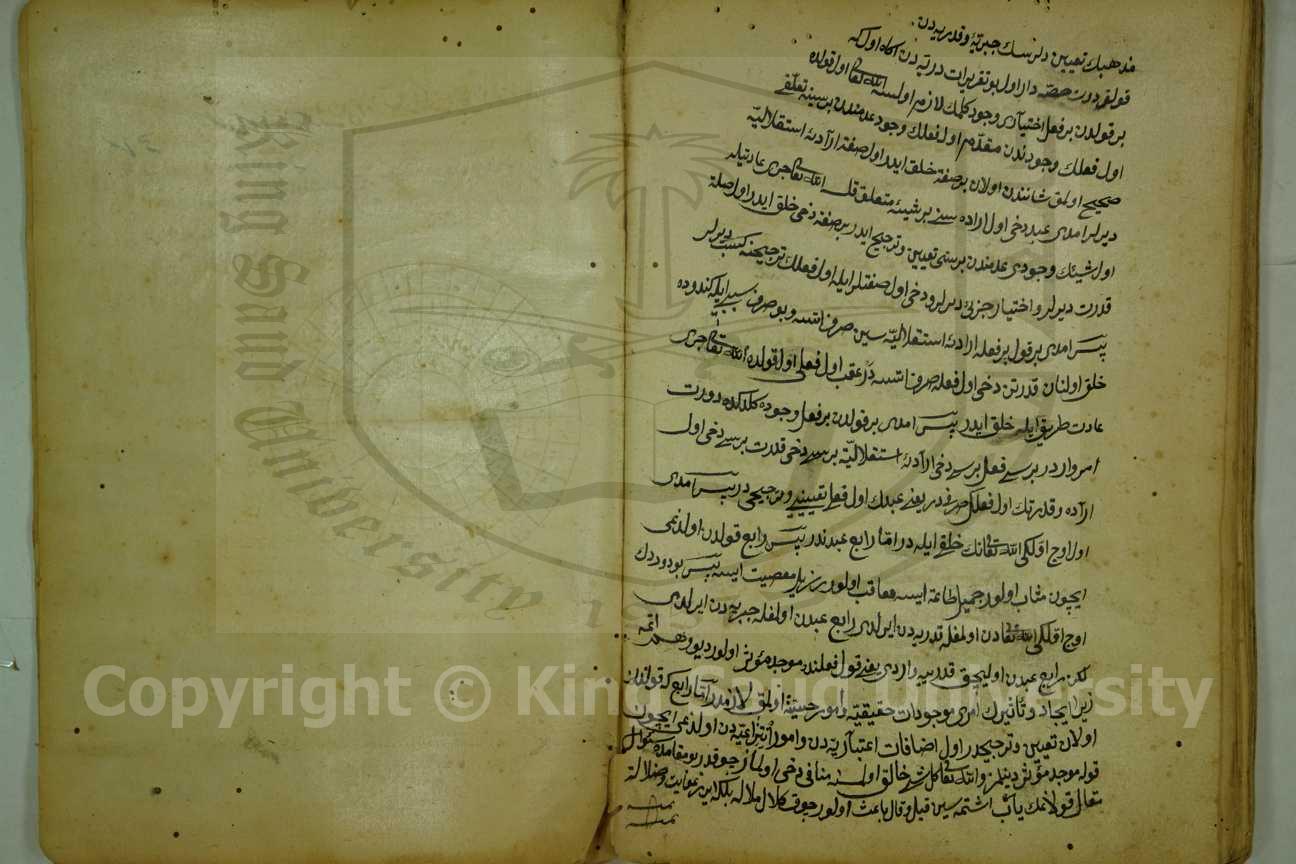 مذهبك تعيين دلرسك جبريه وقدريه دن
قولق دوت حصه دار اول بو تقريرات دريه دن اكاه اول كه
بر قولدن بر فعل اختياری وجوده كلمك لازم اولسه الله تعا اول قولده
اول فعلك وجودندن مقدم اول فعلك وجود عدمندن برسينه تعلقی
صحيح اولمق شانندن اولان بر صفة خلق ايدر اول صفة ارادۀ استقلاليه
ديرلر امدی عبد دخی اول اراده سنی بر شيئه متعلق قلسه الله تعا جری عادتيله
اول شيئك وجودی عدمندن برسنی تعيين وترجيح ايدر بر صفة دخی خلق ايدر اول صفة
قدرت ديرلر واختيار جزئی ديرلر ودخی اول صفتلر ايله اول فعلك ترجيحنه كسب ديرلر
پس امدی بر قول بر فعله ارادۀ استقلاليه سين صرف اتسه وبو صرف سببی ايله كندوده
خلق اولنان قدرتن دخی اول فعله صرف اتسه در عقب اول فعلی اول قولده الله تعا جری
عادت طريق ايله خلق ايدر پس امدی بر قولدن بر فعل وجوده كلدكده دورت
امر واردر برسی فعل برسی دخی ارادۀ استقلاليه برسی دخی قدرت برسی دخی اول
اراده وقدرتك اول فعلكه صرفيدر يعنی عبدك اول فعلی تعيينی وترجيحی در پس امدی
اول اوچ اولكی الله تعانك خلقی ايله در اما رابع عبدندر پس رابع قولدن اولدغی
ايچون مثاب اولور جميل طاعة ايسه معاقب اولور رزيل معصيت ايسه پس بو دورددك
اوچ اولكی الله تعادن اولمغله قدريه دن ايرلدی رابع عبدن اولمغله جبريه دن ايرلدی
لكن رابع عبدن اوليجق قدريه واردی يعنی قول فعلنده موجد مؤثر اولور ديو وهم اتمه
زيرا ايجاد وتأثيرك امری موجودات حقيقيه وامور حسيه اولمق لازمدر اما رابع كه قولدن
اولان تعيين وترجيحدر اول اضافات اعتباريه دن وامور انتزاعيه دن اولدغی ايچون
قوله موجد مؤثر دينلمز والله تعا كل شئ خالق اولمسنه منافی دخی اولماز چوقدر بو مقامده سؤال
تعال قولاغك ياب اشتمه سين قيل وقال باعث اولور چوق كلال ملاله بلكه اير غوايت وضلالة
تمت
تمت